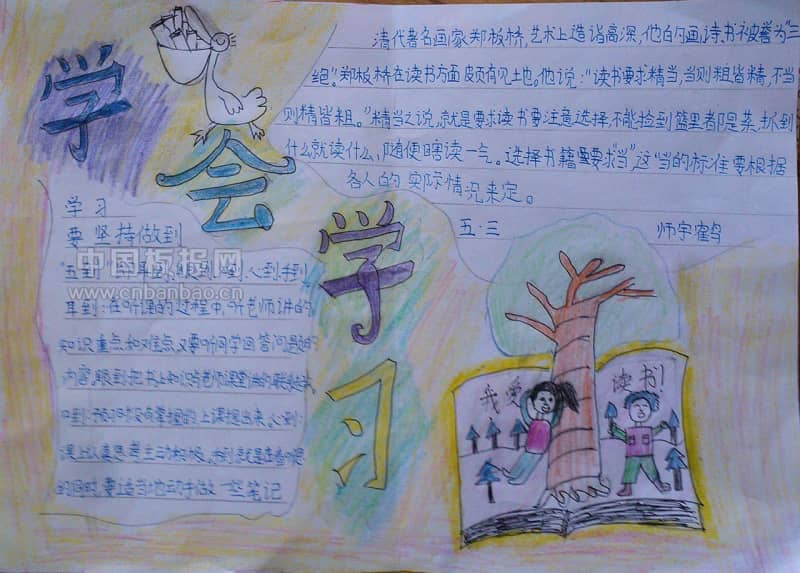 学会学习
清代著名画家郑板桥,艺术上造诣高深,他的画,诗,书被誉为"三
绝"。郑板桥在读书方面颇有见地。他说:"读书要求精当,当则粗皆精,不当
则精皆粗。"精当之说,就是要求读书要注意选择,不能捡到篮里都是菜,抓到
什么就读什么,随便瞎读一气。选择书籍需要求"当",这"当的标准要根据
各人的实际情况来定。
五·三 师宇鹤
学习
要坚持做到
中国板报网
www.cnbanbao.cn
"五到"
耳到:在听课的过程中,听老师讲的
知识重点和难点,又要听同学回答问题的
内容,眼到把书上知识与老师课堂
口到:预习时没有掌握的上课提出来,心到:
课上认真思考主动积极,
的同时,要适当地动手做一些笔记
我爱读书!